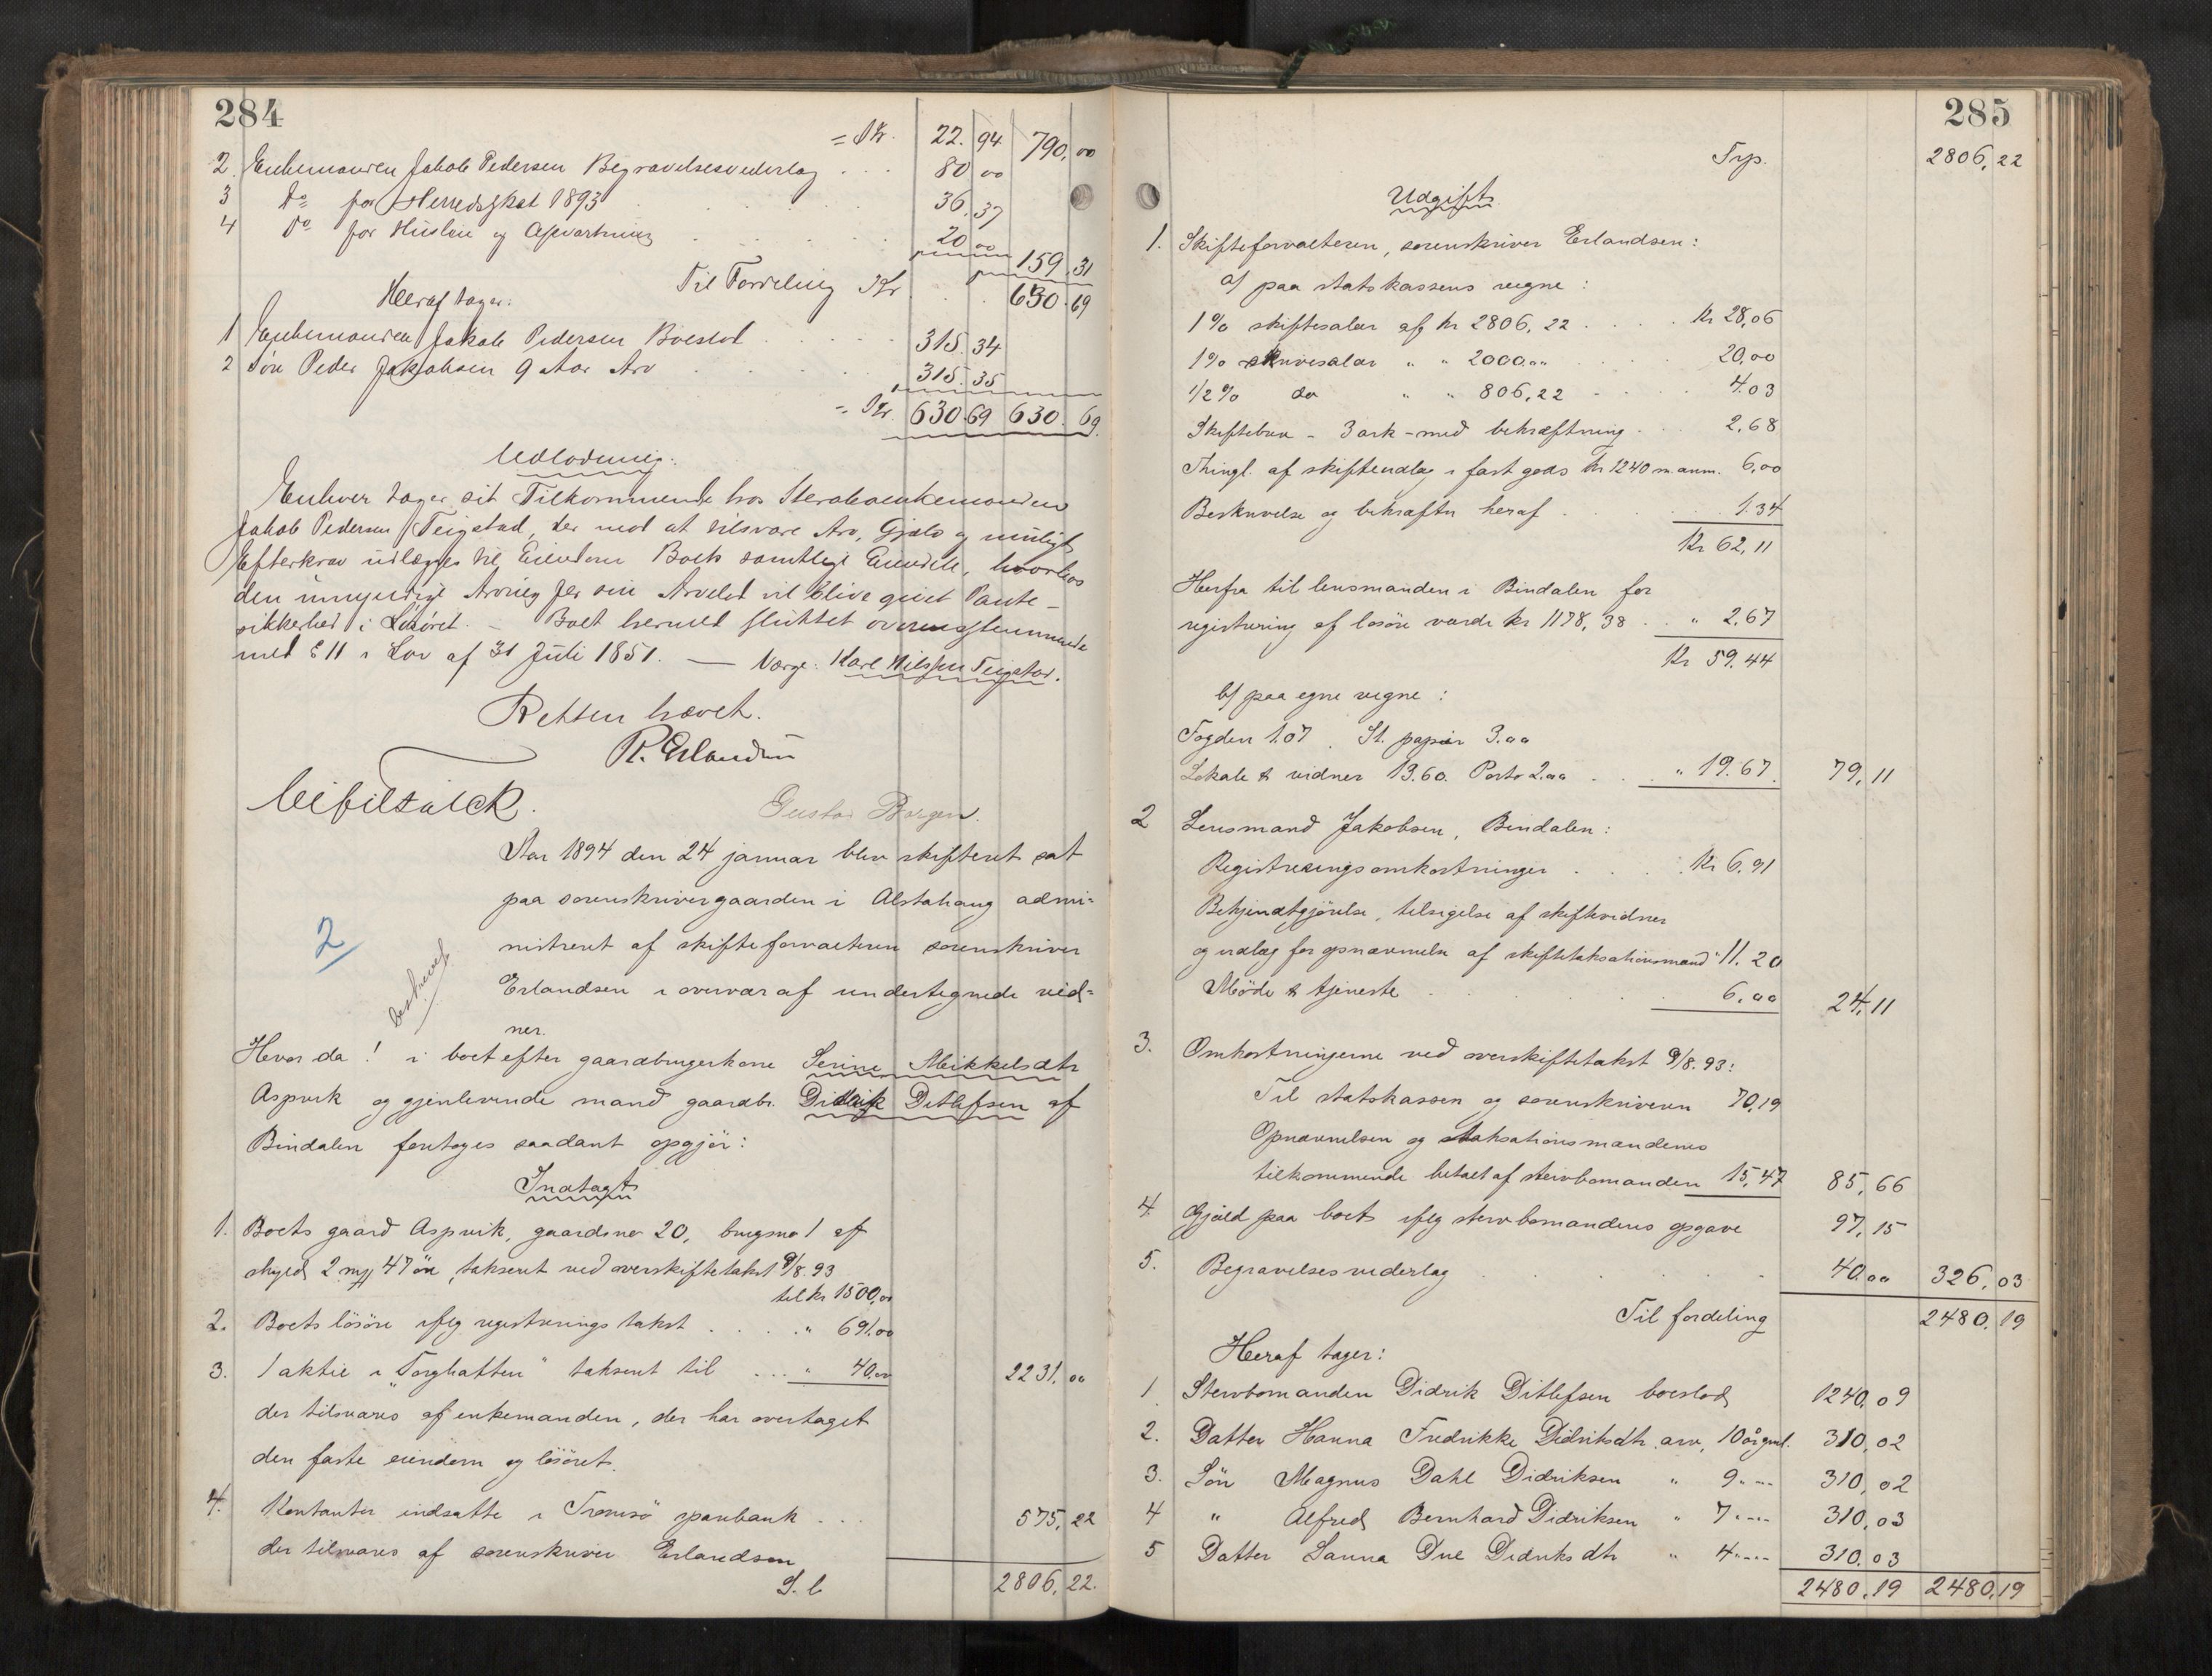 284
= Kr. 22.94 790,00
2 Enkemanden Jakob Pedersen Begravelsesvederlag . . . 80 00
3 Do for Herredsskat 1893 . . . 36,37
4 Do for Husleie og Opvartning . . . 20 00
159.31
Til Fordeling Kr 630.69
Heraf tager:
1 Enkemanden Jakob Pedersen Boeslod . . . 315.34
2 Søn Peder Jakobsen 9 Aar Arv . . . 315.35
= Kr. 630.69 630.69.
Udlodning:
Enhver tager sit Tilkommende hos Sterboenkemanden
Jakob Pedersen Teigstad, der mod at tilsvare Arv, Gjæld og muligt
Efterkrav udlægges til Eiendom Boets samtlige Eiendele, hvorhos
den umyndige Arving for sin Arvelod vil blive givet Pante-
sikkerhed i Løsøret. - Boet hermed sluttet overensstemmende
med § 11 i Lov af 31 Juli 1851. — Værge: Karl Nilssen Teigstad.
Retten hævet.
R. Erlandsen
Gustav Borgen.
Aar 1894 den 24 januar blev skifteret sat
paa sorenskrivergaarden i Alstahaug admi-
nistreret af skifteforvalteren sorenskriver
Erlandsen i overvær af undertegnede vid-
ner.
2
beskrevet
Hvor da! i boet efter gaardbrugerkone Serine Mikkelsdtr
Aspvik og gjenlevende mand gaardbr. Didrik Ditlefsen af
Bindalen foretoges saadant opgjør:
Indtægt
1. Boets gaard Aspvik, gaardsno 20, brugsno 1 af
skyld 2 mrk 47 öre, takseret ved overskiftetakst 9/8.93
til kr 1500,00
2. Boets lösöre ifølg registreringstakst . . . " 691.00
3. 1 aktie i "Torghatten" takseret til . . . " 40.00 2231.00
der tilsvares af enkemanden, der har overtaget
den faste eiendom og lösöret.
4. Kontanter indsatte i Tromsö sparebank . . . 575,22
der tilsvares af sorenskriver Erlandsen
S. l 2806,22.
285
Trp. 2806,22
Udgift.
1. Skifteforvalteren, sorenskriver Erlandsen:
a/ paa statskassens vegne:
1% skiftesalær af kr 2806,22 . . . kr 28,06
1% skrivesalær " " 2000.00 . . . 20,00
1/2% do " " 806,22 . . . 4.03
Skiftebrev - 3 ark - med bekræftning . . 2,68
Thingl. af skifteudlæg i fast gods kr 1240 m. anm. 6,00
Beskrivelse og bekræftn heraf . . . 1.34
Kr 62,11
Herfra til lensmanden i Bindalen for
registrering af lösöre værdi kr 1178,38 . . " 2.67
Kr 59.44
b/ paa egne vegne:
Fogden 1.07. St. papir 3.00
Lokale & vidner 13.60. Porto 2.00 . . . " 19.67. 79,11
2 Lensmand Jakobsen, Bindalen:
Registreringsomkostninger . . . Kr 6.91
Bekjendtgjörelse, tilsigelse af skiftevidner
og udlæg for opnævnelse af skiftetaksationsmænd " 11.20
Möde & tjeneste . . . 6,00 24,11
3. Omkostningerne ved overskiftetakst 9/8.93:
Til statskassen og sorenskriveren 70,19
Opnævnelsen og taksationsmændenes
tilkommende betalt af stervbomanden 15,47 85,66
4 Gjæld paa boet ifølg stervbomandens opgave 97,15
5. Begravelsesvederlag . . . 40.00 326,03
Til fordeling 2480,19
Heraf tager:
1. Stervbomanden Didrik Ditlefsen boeslod 1240,09
2. Datter Hanna Fredrikke Didriksdtr. arv, 10 år gml. 310,02
3. Sön Magnus Dahl Didriksen " 9 " — 310,02
4 " Alfred Bernhard Didriksen " 7 " — 310,03
5 Datter Sanna Due Didriksdtr " 4 " — 310.03
2480,19 2480,19